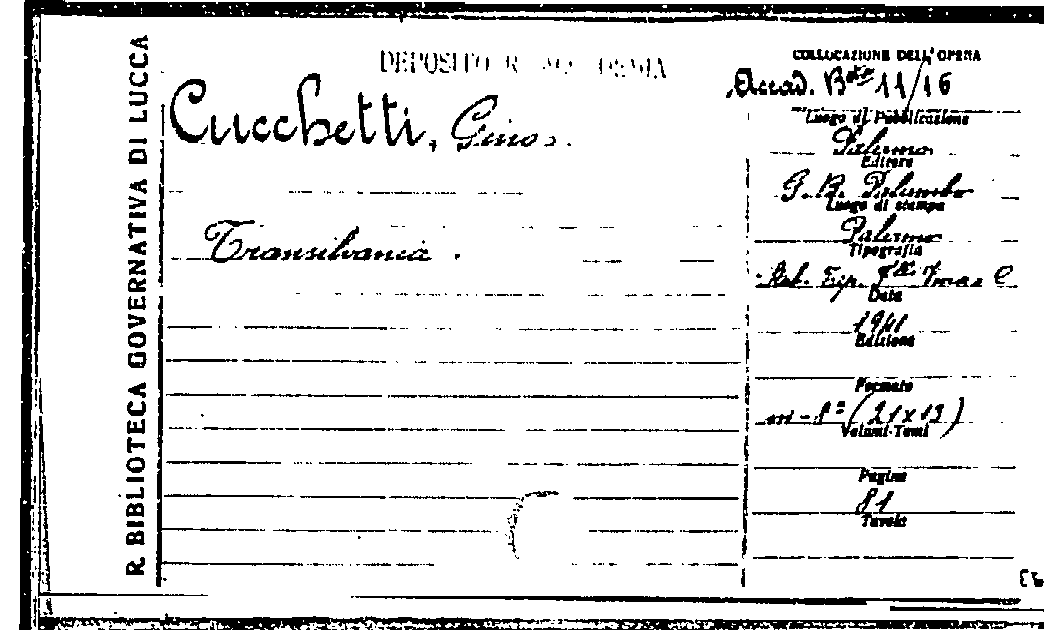 R. BIBLIOTECA GOVERNATIVA DI LUCCA
DEPOSITO R.
Cucchetti, Gino.
Transilvania.
COLLOCAZIONE DELL'OPERA
Accad. Bta 11/16
Luogo di Pubblicazione
Palermo
Editore
G. B. Palumbo
Luogo di stampa
Palermo
Tipografia
Tip. Flli
Data
1941
Edizione
Formato
in-8° (21x13)
Volumi-Tomi
Pagine
81
Tavole